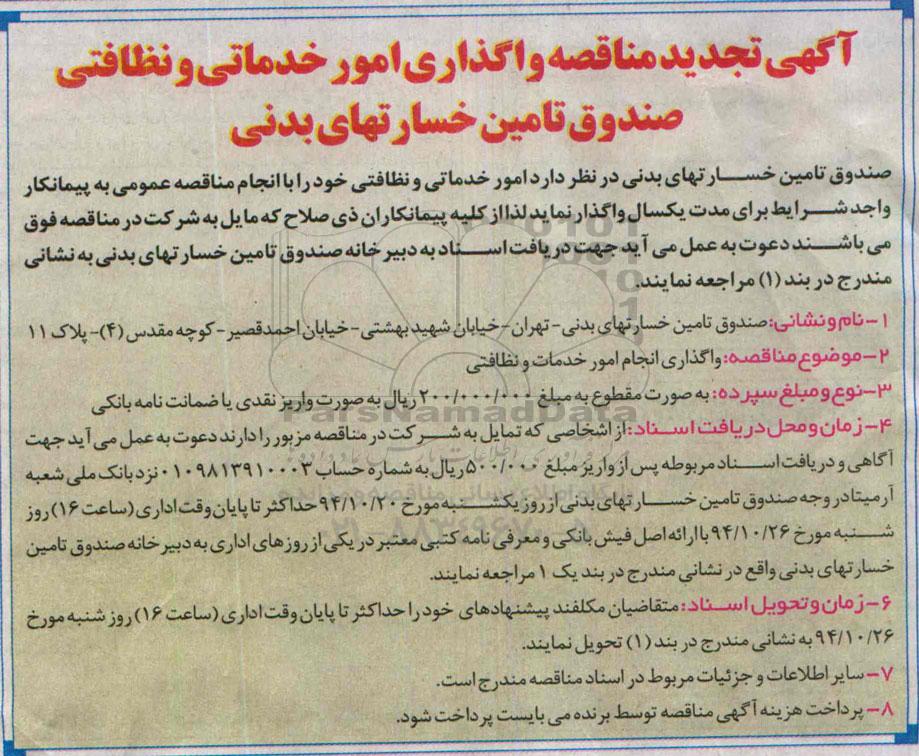 آگهی تجدید مناقصه واگذاری امور خدماتی و نظافتی
صندوق تامین خسارتهای بدنی
صندوق تامین خسارتهای بدنی در نظر دارد امور خدماتی و نظافتی خود را با انجام مناقصه عمومی به پیمانکار
واجد شرایط برای مدت یکسال واگذار نماید لذا از کلیه پیمانکاران ذی صلاح که مایل به شرکت در مناقصه فوق
می باشند دعوت به عمل می آید جهت دریافت اسناد به دبیرخانه صندوق تامین خسارتهای بدنی به نشانی
مندرج در بند (۱) مراجعه نمایند.
۱- نام و نشانی: صندوق تامین خسارتهای بدنی - تهران - خیابان شهید بهشتی - خیابان احمدقصیر - کوچه مقدس (۴) - پلاک ۱۱
۲- موضوع مناقصه: واگذاری انجام امور خدمات و نظافتی
۳- نوع و مبلغ سپرده: به صورت مقطوع به مبلغ ۲۰۰/۰۰۰/۰۰۰ ریال به صورت واریز نقدی یا ضمانت نامه بانکی
۴- زمان و محل دریافت اسناد: از اشخاصی که تمایل به شرکت در مناقصه مزبور را دارند دعوت به عمل می آید جهت
آگاهی و دریافت اسناد مربوطه پس از واریز مبلغ ۵۰۰/۰۰۰ ریال به شماره حساب ۰۱۰۹۸۱۳۹۱۰۰۰۳ نزد بانک ملی شعبه
آرمیتا در وجه صندوق تامین خسارتهای بدنی از روز یکشنبه مورخ ۹۴/۱۰/۲۰ حداکثر تا پایان وقت اداری (ساعت ۱۶) روز
شنبه مورخ ۹۴/۱۰/۲۶ با ارائه اصل فیش بانکی و معرفی نامه کتبی معتبر در یکی از روزهای اداری به دبیرخانه صندوق تامین
خسارتهای بدنی واقع در نشانی مندرج در بند یک ۱ مراجعه نمایند.
۶- زمان و تحویل اسناد: متقاضیان مکلفند پیشنهادهای خود را حداکثر تا پایان وقت اداری (ساعت ۱۶) روز شنبه مورخ
۹۴/۱۰/۲۶ به نشانی مندرج در بند (۱) تحویل نمایند.
۷- سایر اطلاعات و جزئیات مربوط در اسناد مناقصه مندرج است.
۸- پرداخت هزینه آگهی مناقصه توسط برنده می بایست پرداخت شود.
ParsNamadData